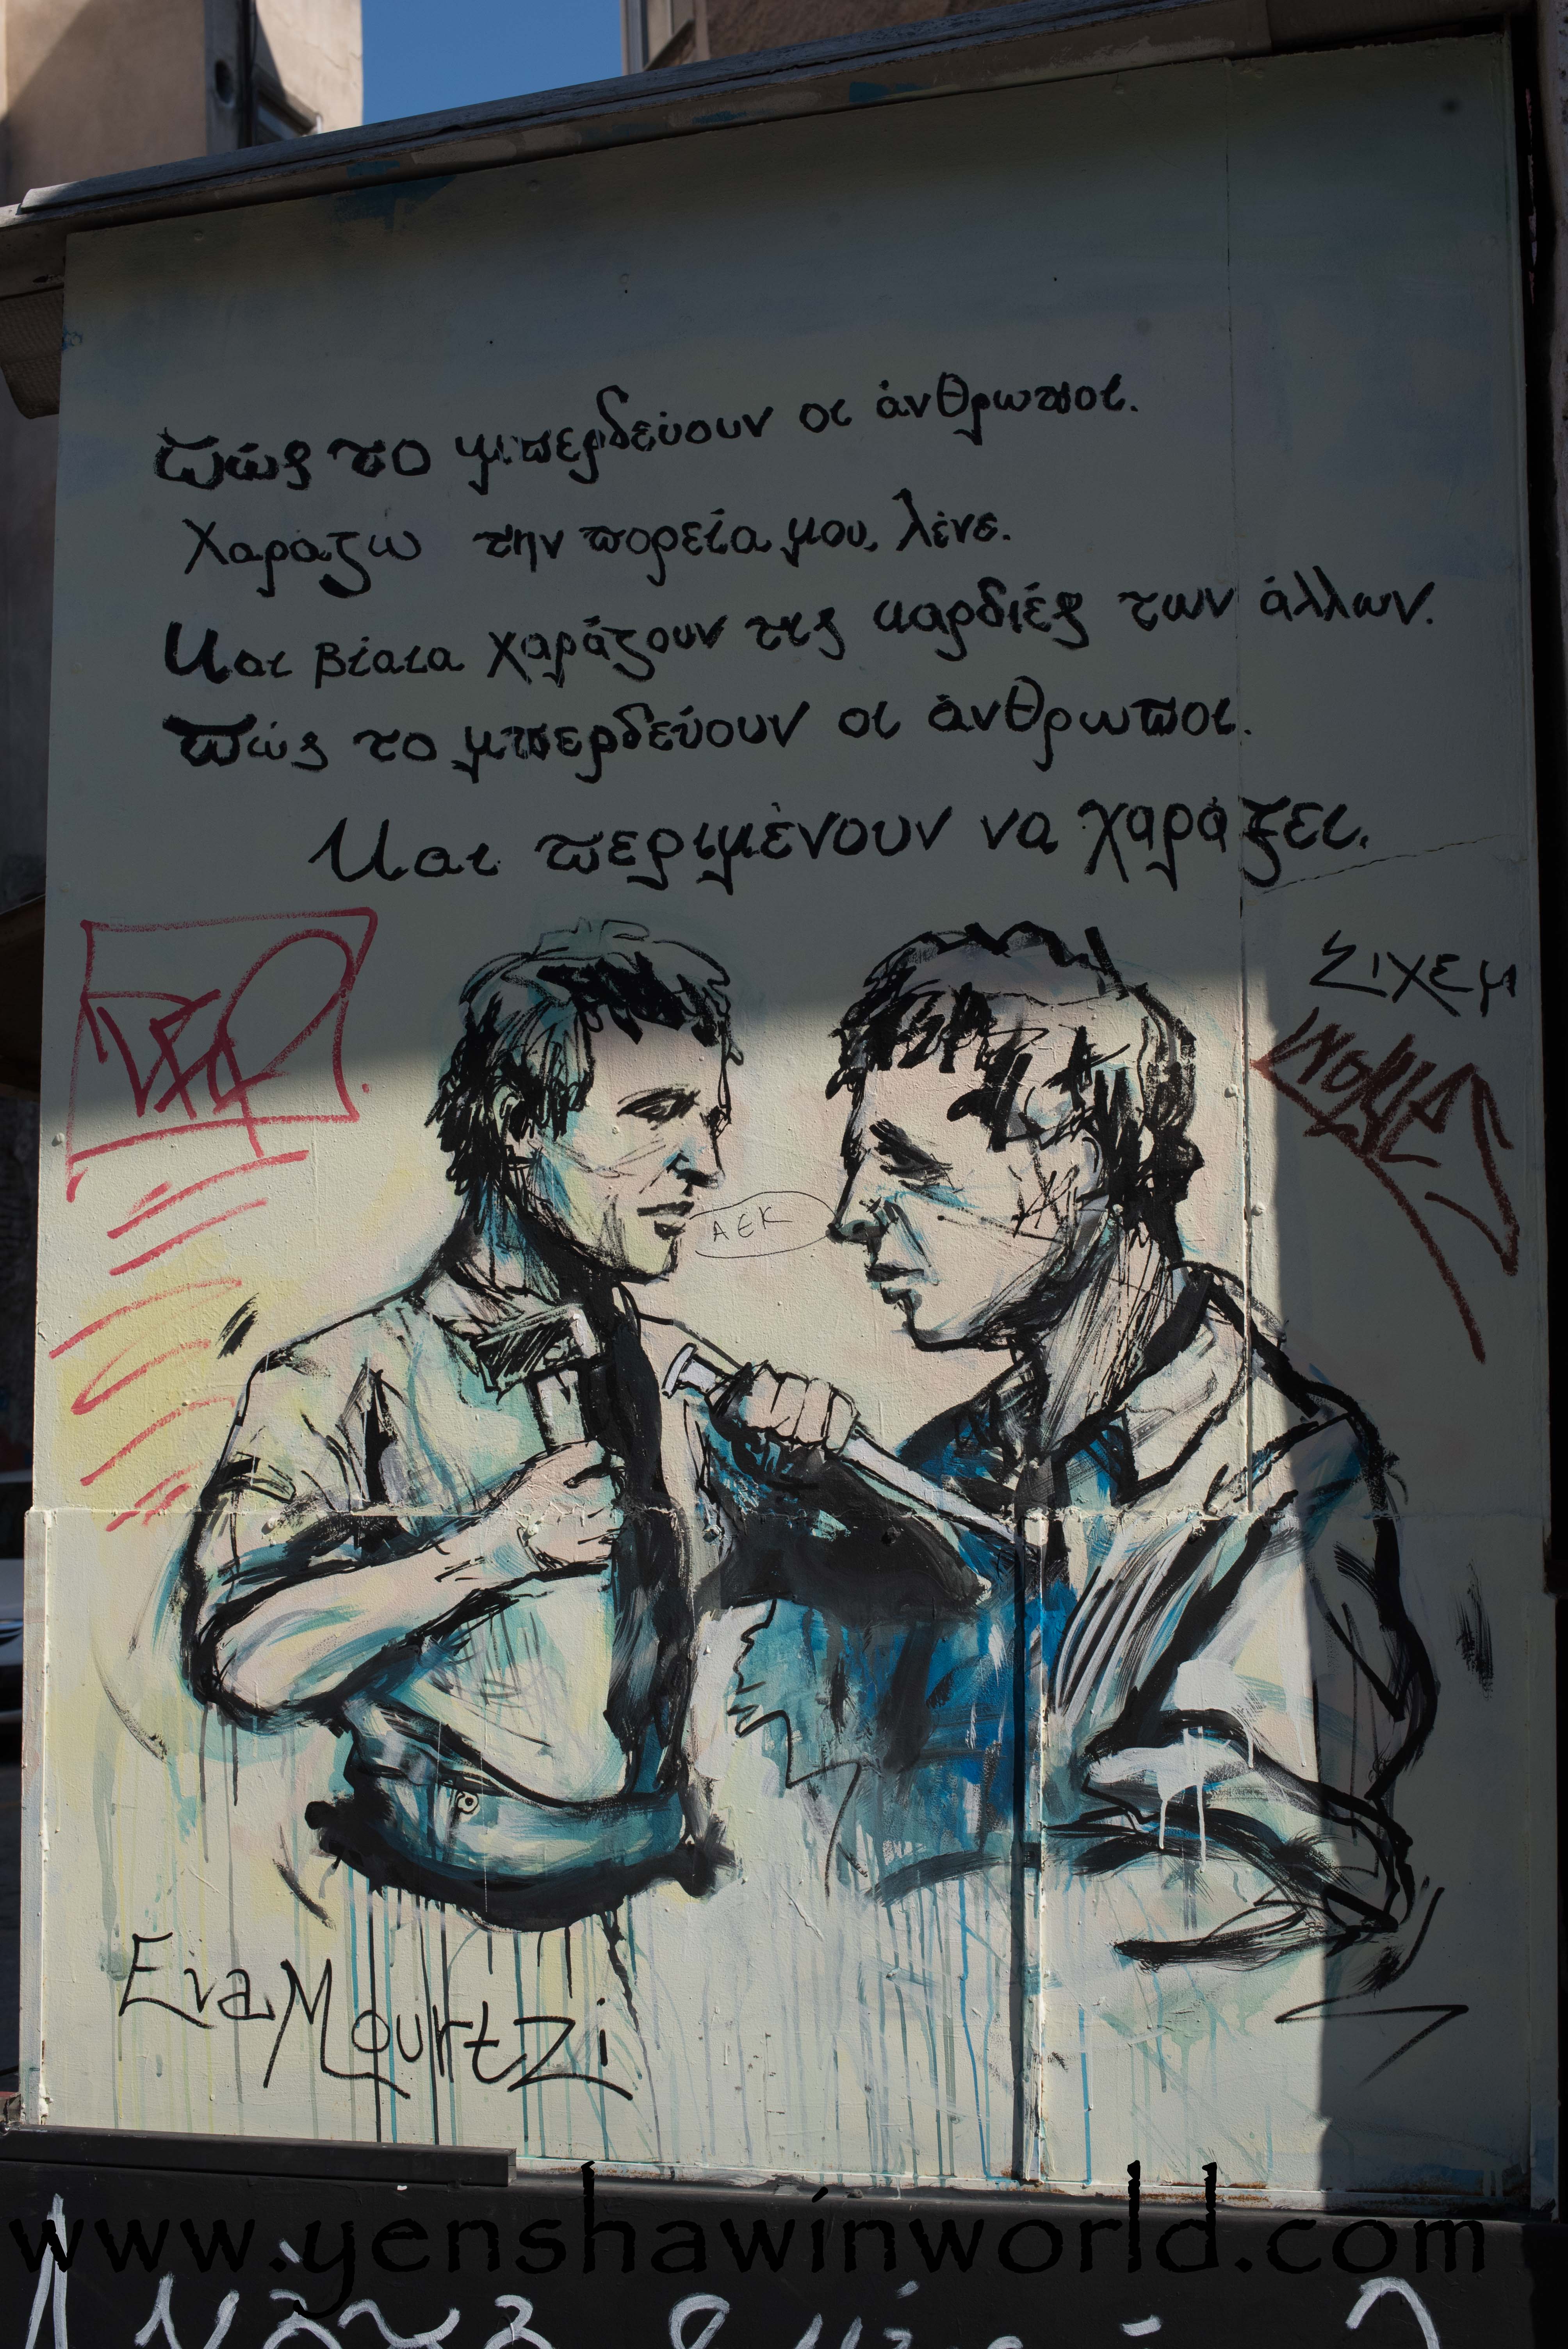 Πώς το μπερδεύουν οι άνθρωποι.
Χαράζω την πορεία μου, λένε.
Και βίαια χαράζουν τις καρδιές των άλλων.
Πώς το μπερδεύουν οι άνθρωποι.
Και περιμένουν να χαράξει.
ΣΙΧΕΜ
ΑΕΚ
Eva Mourtzi
www.yenshawinworld.com